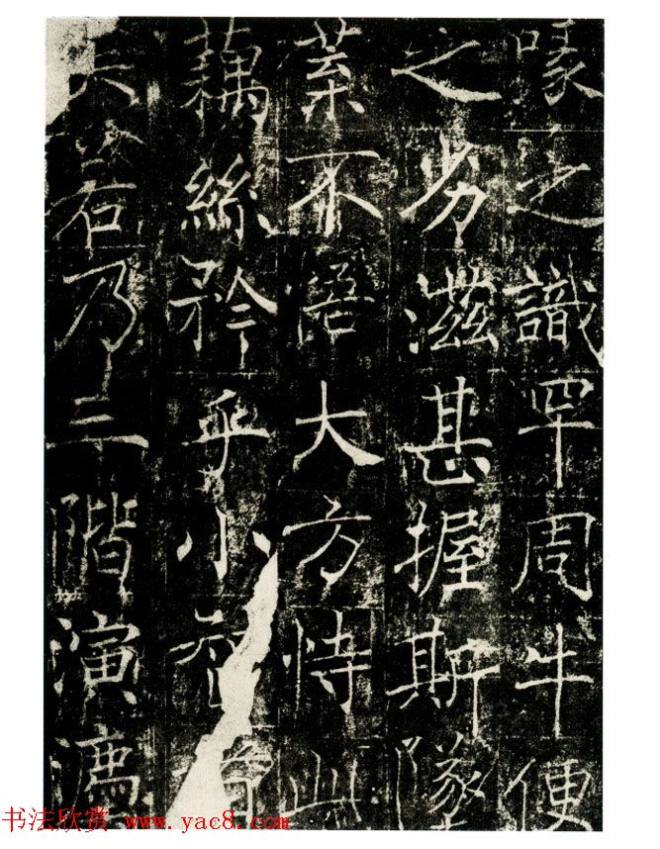 喙之識罕周牛便
之劣滋甚握斯墜
葉不悟大方恃此
藕絲矜乎小
夫若乃三階演濟
书法欣赏 www.yac8.com